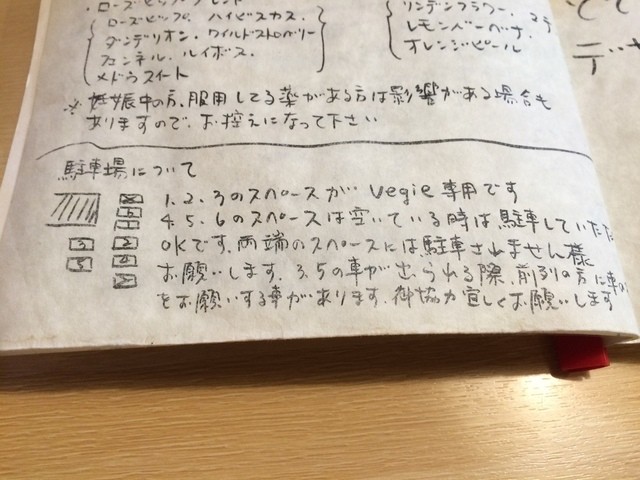 ・ローズヒップブレンド
ローズヒップ. ハイビスカス.
ダンデリオン. ワイルドストロベリー
フェンネル. ルイボス.
メドウスイート
リンデンフラワー.
レモンバーベナ.
オレンジピール
※ 妊娠中の方、服用してる薬がある方は影響がある場合も
ありますので、お控えになって下さい
駐車場について
1. 2. 3のスペースが Vegie 専用です
4. 5. 6のスペースは空いている時は駐車していただ
OKです. 両端のスペースには駐車されません様
お願いします. 3. 5の車が出られる際、前列の方に車の
をお願いする事があります. 御協力宜しくお願いします